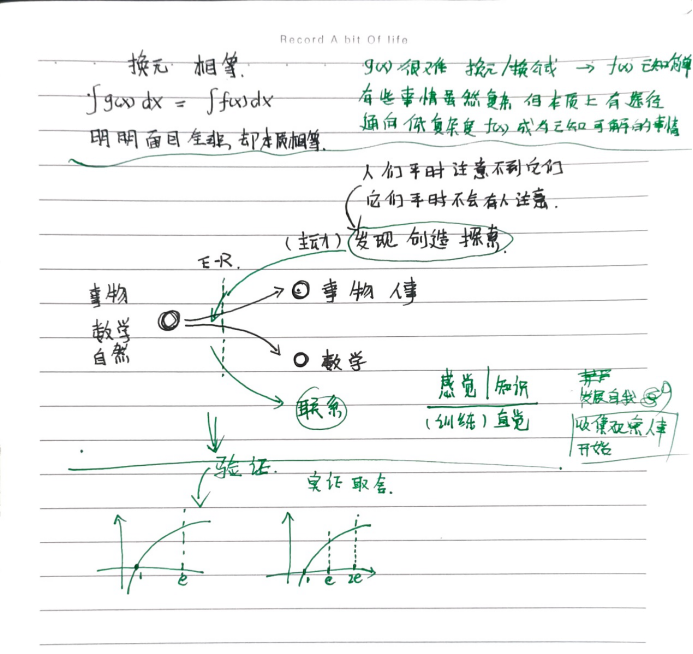 Record A bit Of life
换元 相等.
∫g(x)dx = ∫f(x)dx
明明面目全非, 却本质相等.
g(x) 很难 换元/换公式 → f(x) 已知简单
有些事情虽然复杂 但本质上有路径
通向低复杂度 f(x) 成为已知可解的事情
人们平时注意不到它们
它们平时不会有人注意.
(主动) 发现 创造 探索.
E-R.
事物
数学
自然
事物 人事
数学
联系
感觉 | 知识
(训练) 直觉
发展自我
收集观察人事
开始
验证.
实证取舍.
1 e
1 e 2e